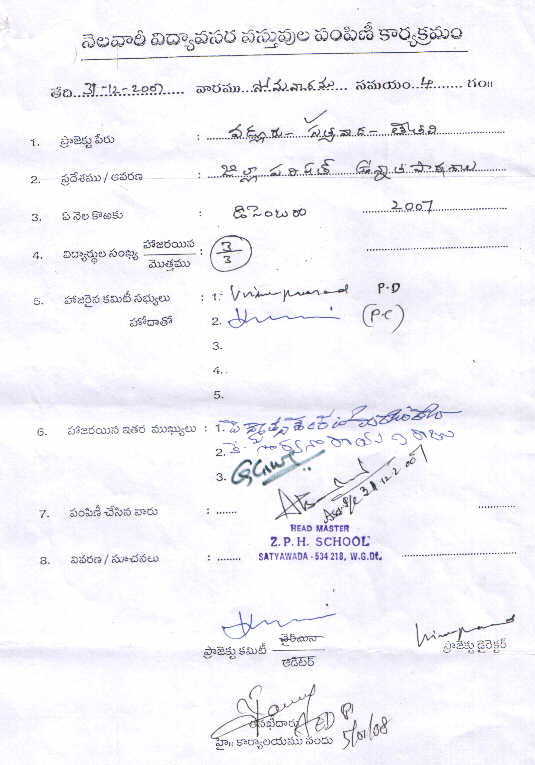 నెలవారీ విద్యావసర వస్తువుల పంపిణీ కార్యక్రమం
తేది..31-12-2007..... వారము..సోమవారము... సమయం..4...... గం॥
1. ప్రాజెక్టు పేరు : వడ్లూరు - సత్యవాడ - తేతలి
2. ప్రదేశము / ఆవరణ : జిల్లా పరిషత్ ఉన్నత పాఠశాల
3. ఏ నెల కొఱకు : డిసెంబరు 2007
4. విద్యార్థుల సంఖ్య హాజరయిన / మొత్తము : 3 / 3
5. హాజరైన కమిటీ సభ్యులు : 1. P.D
హోదాతో 2. (P.C)
3.
4.
5.
6. హాజరయిన ఇతర ముఖ్యులు : 1.
2.
3.
31.12.2007
7. పంపిణీ చేసిన వారు : ......
HEAD MASTER
Z.P.H. SCHOOL
SATYAWADA - 534 218, W.G.Dt.
8. వివరణ / సూచనలు : ........
ప్రాజెక్టు కమిటీ చైర్మన్ / ఆడిటర్
ప్రాజెక్టు డైరెక్టర్
తనిఖీదారు
హై॥ కార్యాలయము నందు 5/01/08